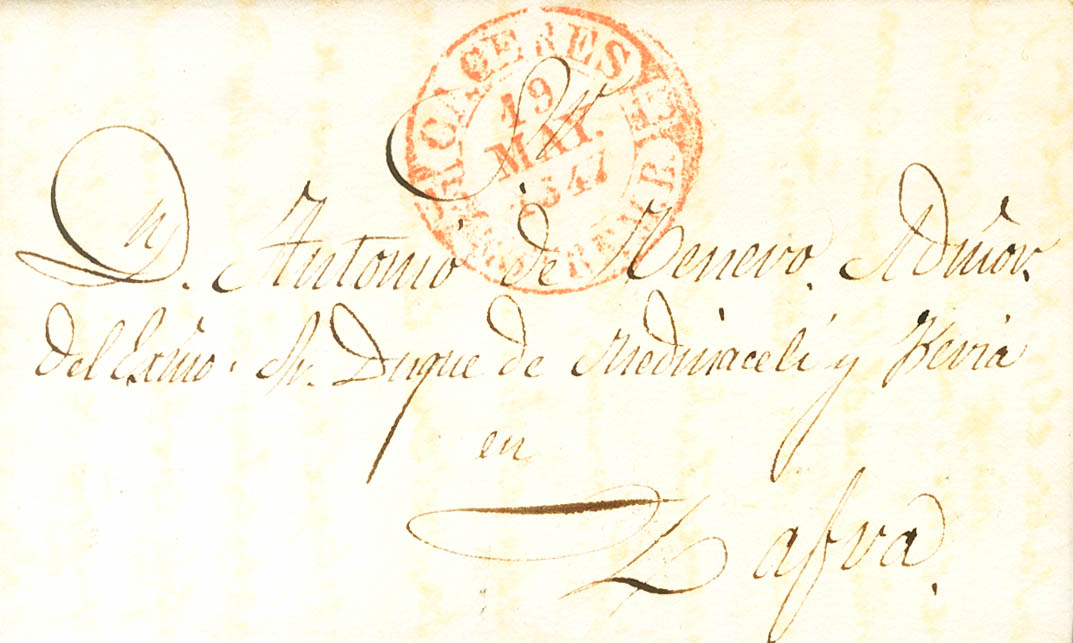 CACERES
19
MAY.
1847
EXTREMB.
Sr
Dn. Antonio de Tenero. Admor.
del Exmo. Sr. Duque de Medinaceli y Feria
en
Zafra.